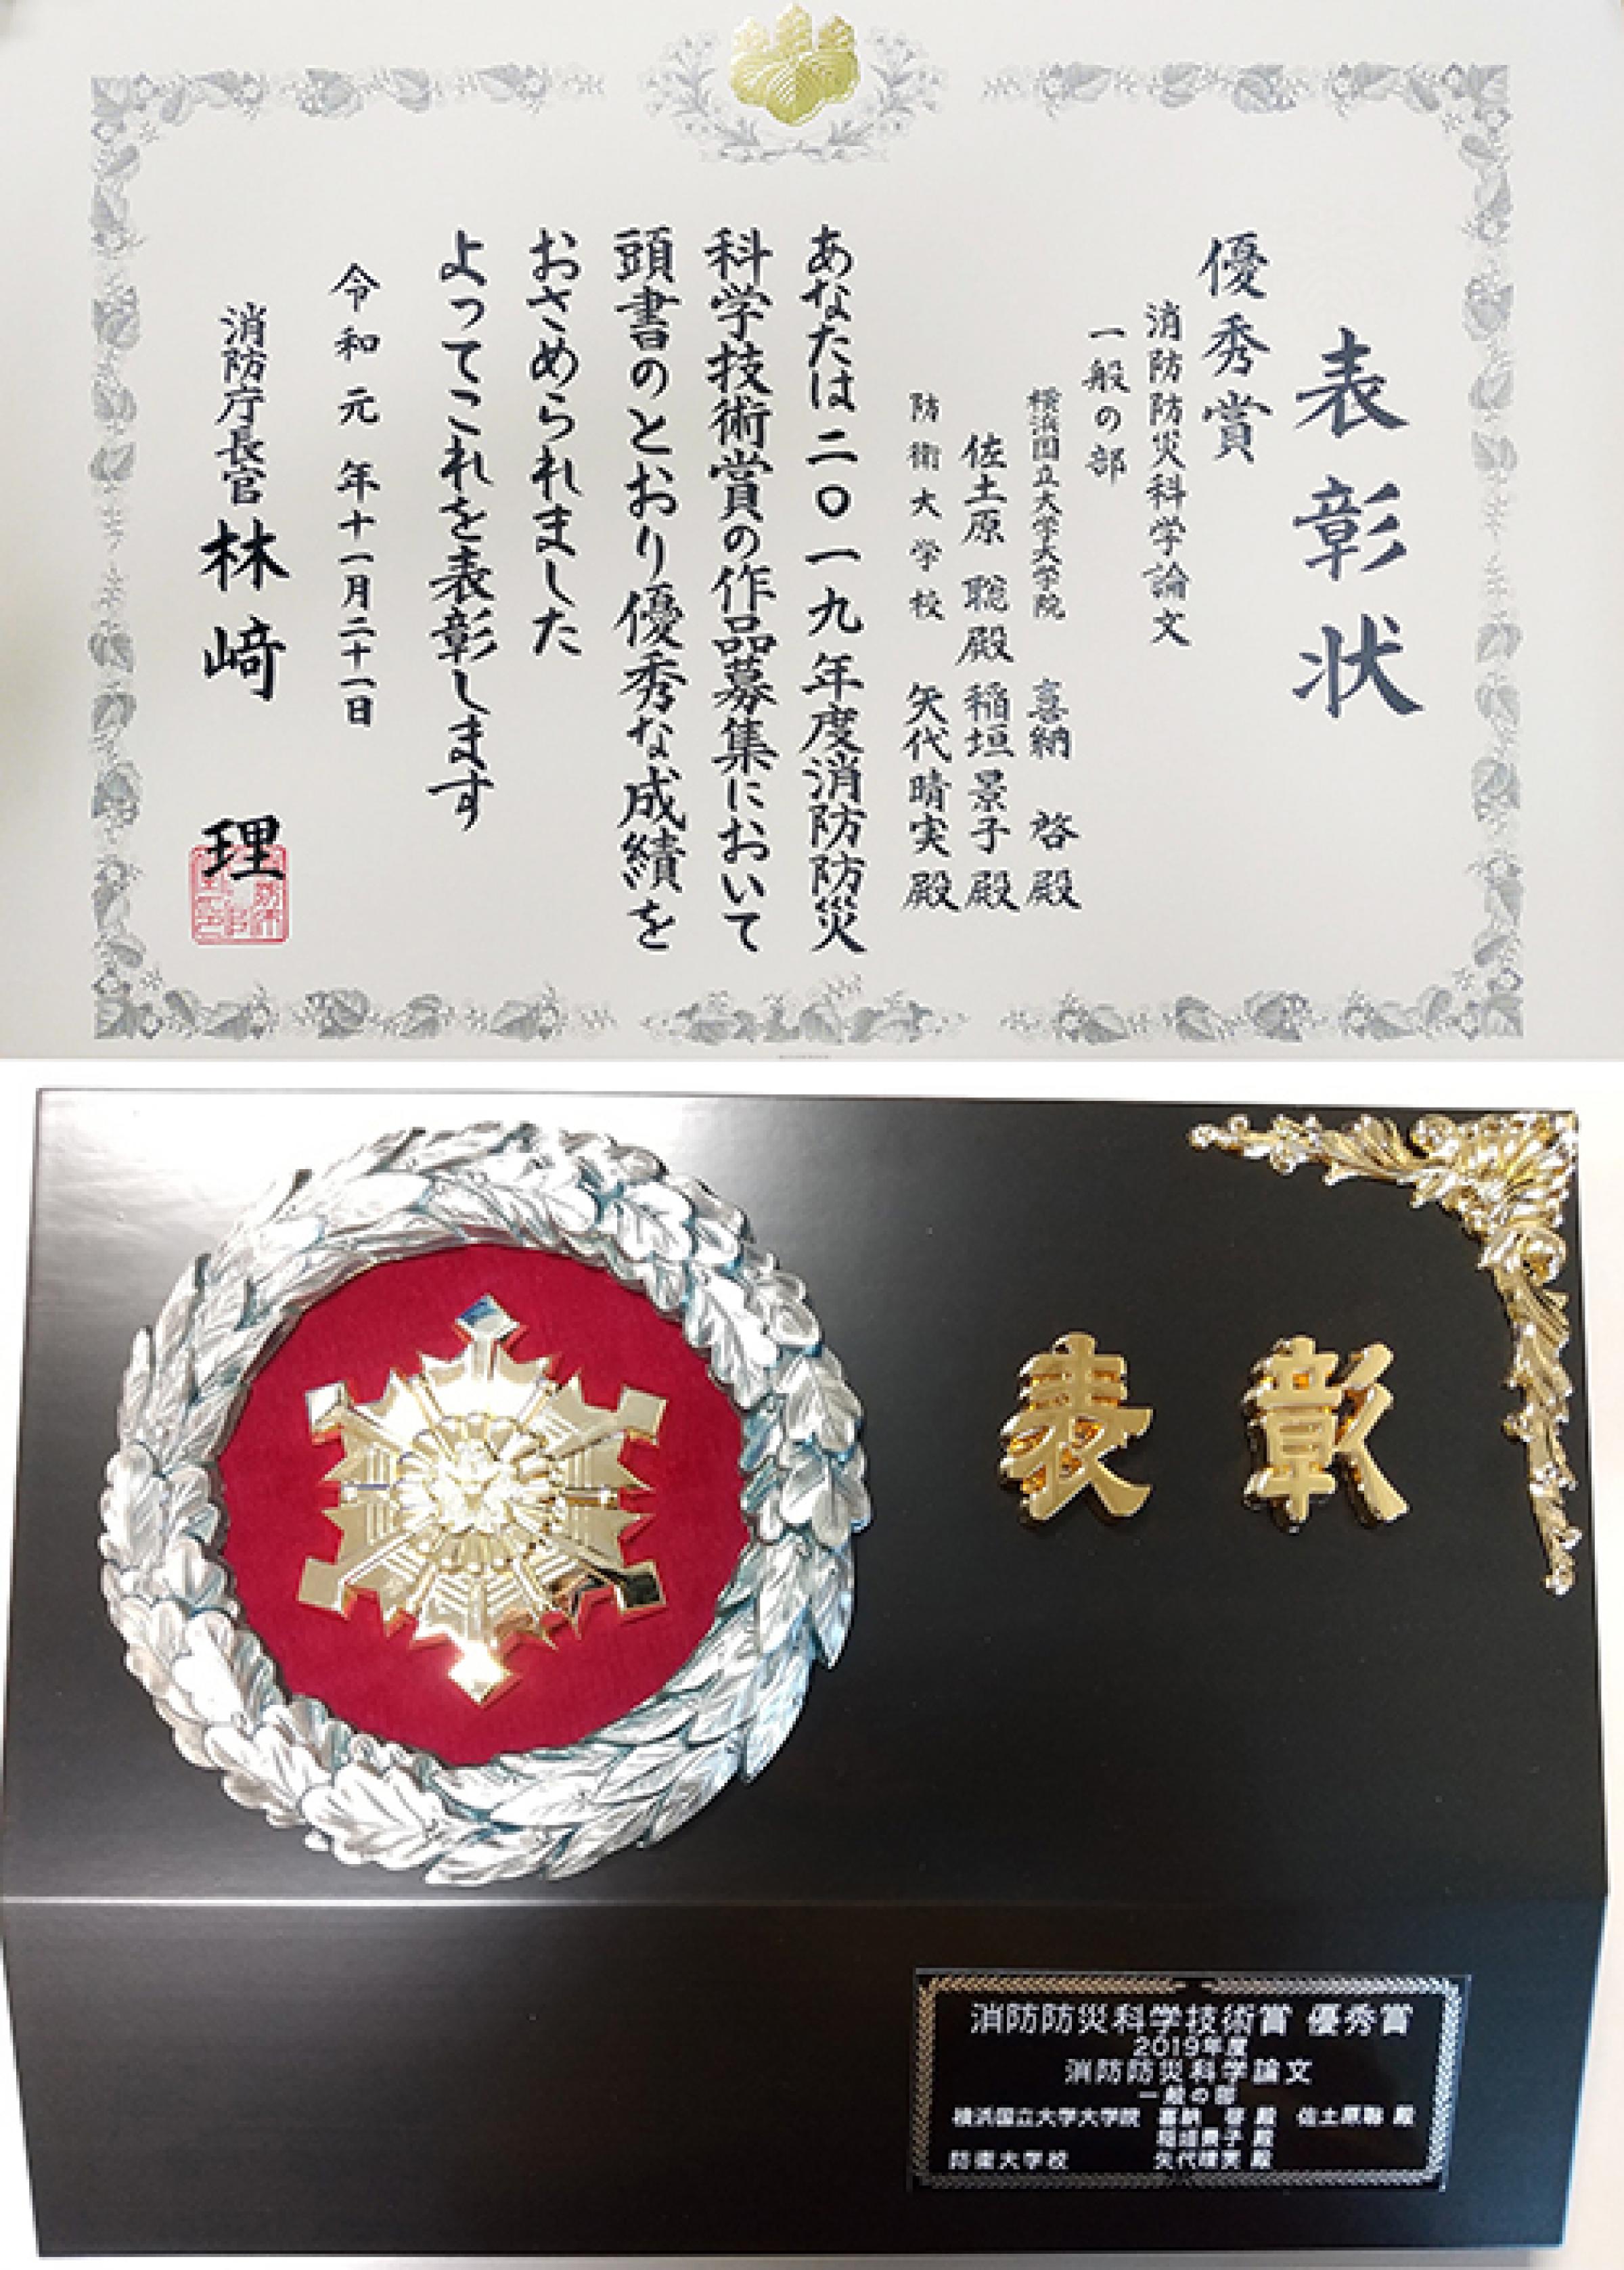 表彰状
優秀賞
消防防災科学論文
一般の部
横浜国立大学大学院 喜納 啓殿
佐土原聡殿 稲垣景子殿
防衛大学校 矢代晴実殿
あなたは二〇一九年度消防防災
科学技術賞の作品募集において
頭書のとおり優秀な成績を
おさめられました
よってこれを表彰します
令和元年十一月二十一日
消防庁長官 林﨑 理
表彰
消防防災科学技術賞 優秀賞
2019年度
消防防災科学論文
一般の部
横浜国立大学大学院 喜納 啓殿 佐土原聡殿
稲垣景子殿
防衛大学校 矢代晴実殿